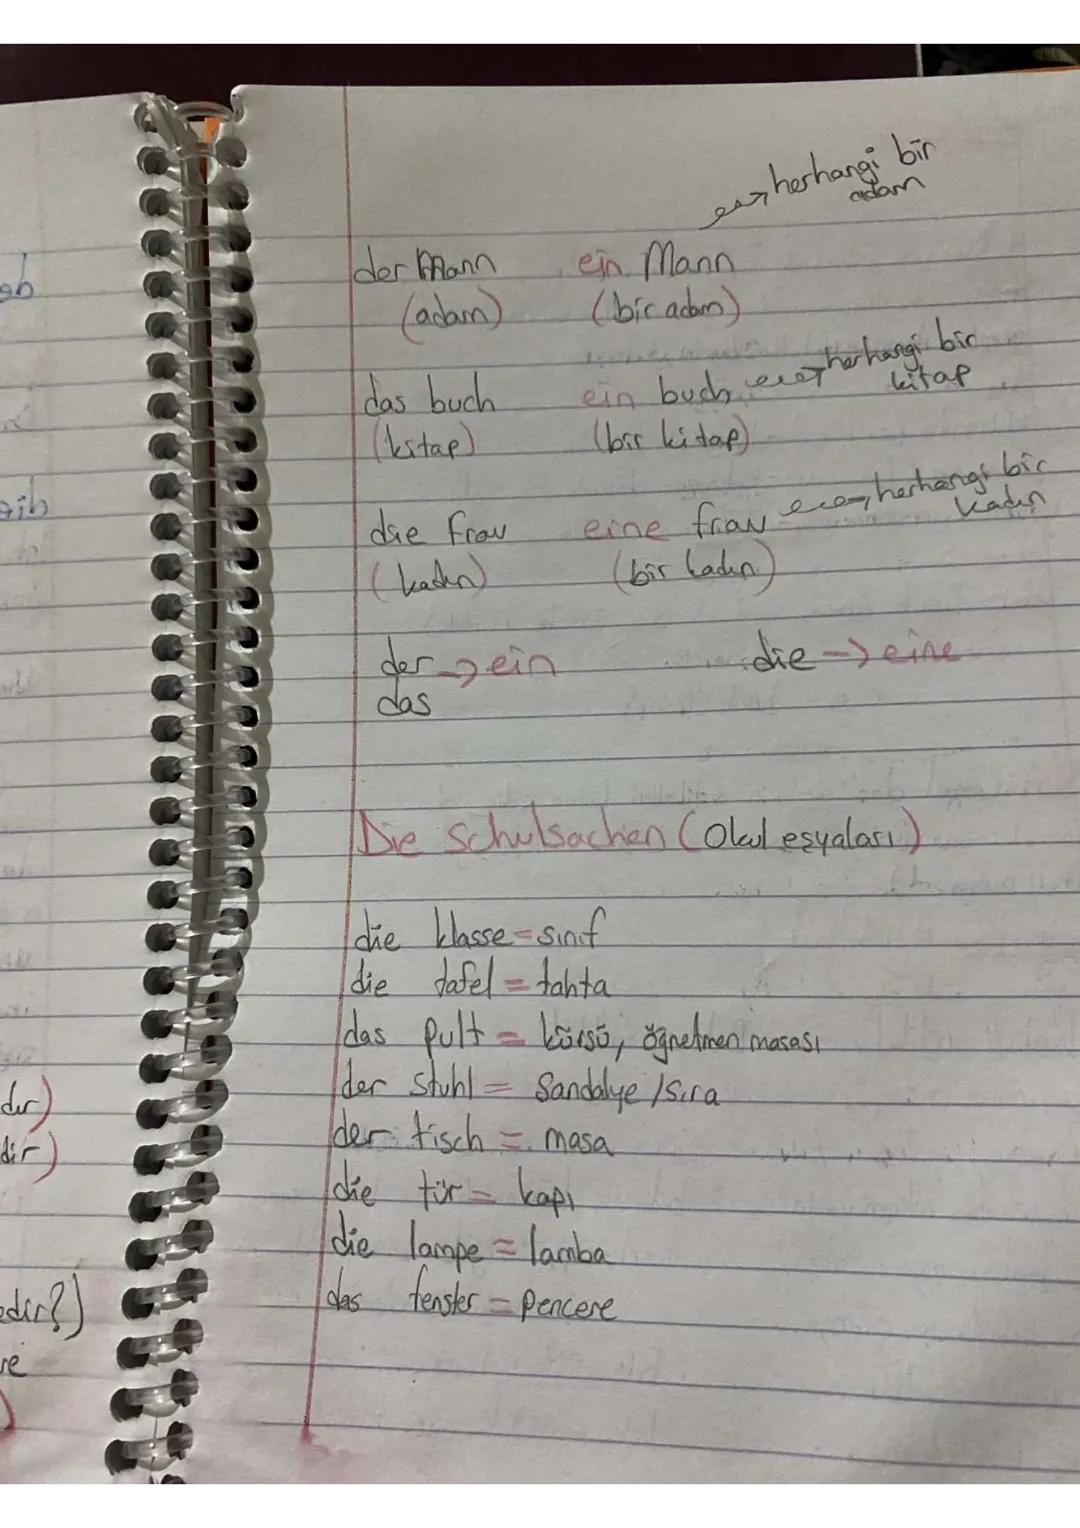 herhangi bir
adam
der Mann ein Mann
(adam) (bir adam)
herhangi bir
das buch ein buch kitap
(kitap) (bir kitap)
herhangi bir
die frau eine frau kadın
(kadın) (bir kadın)
der → ein die → eine
das
Die Schulsachen (Okul eşyaları)
die klasse = sınıf
die tafel = tahta
das pult = kürsü, öğretmen masası
der stuhl = Sandalye / Sıra
der tisch = masa
die tür = kapı
die lampe = lamba
das fenster = pencere
dır)
dir)
edir?)